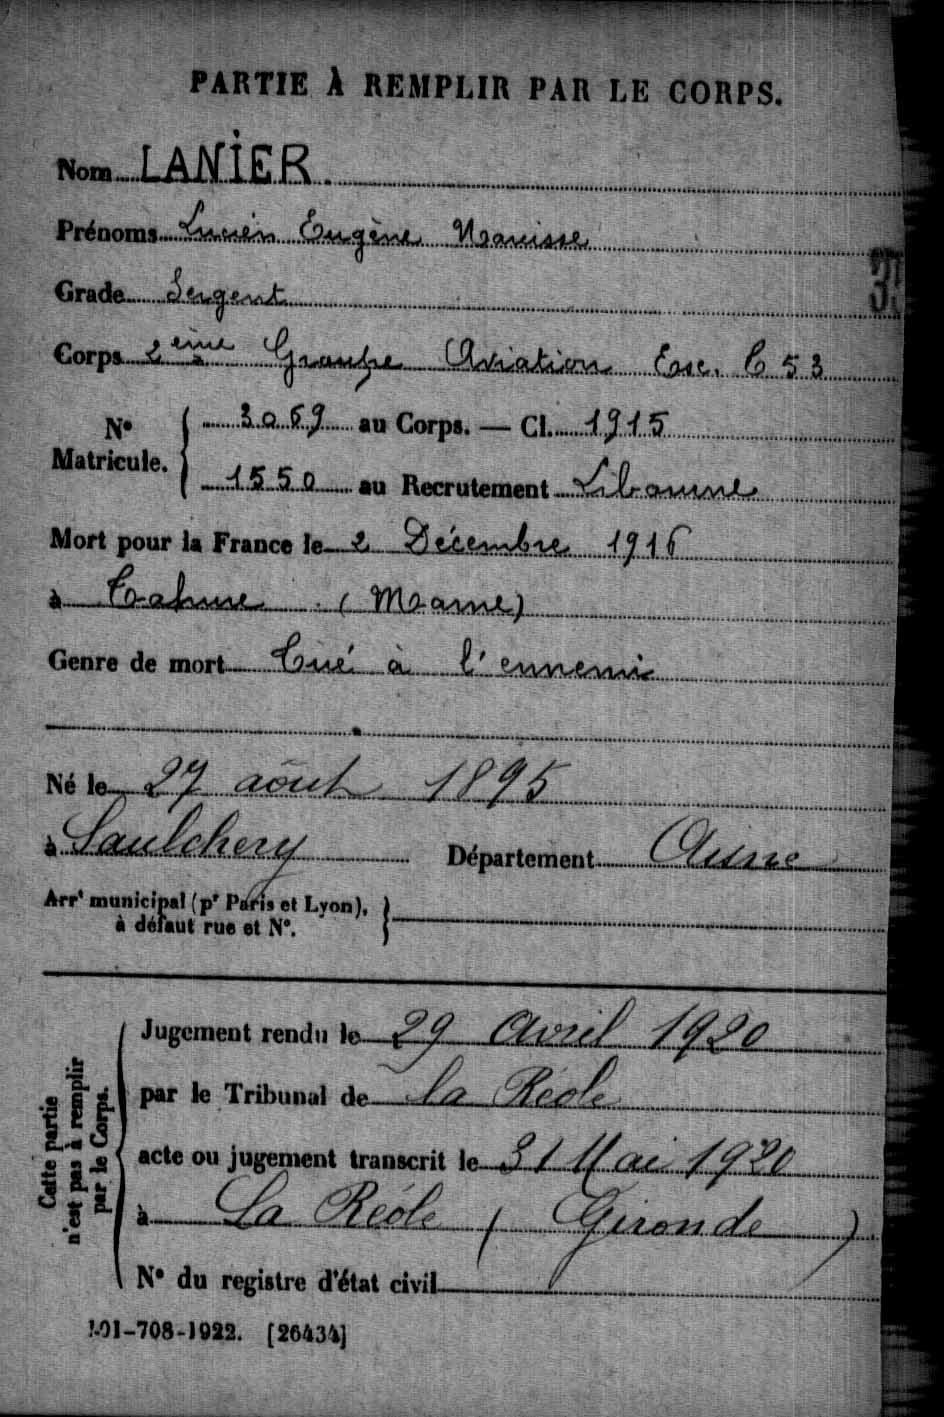 PARTIE À REMPLIR PAR LE CORPS.
Nom LANIER.
Prénoms Lucien Eugène Narcisse
Grade Sergent
Corps 2ème Groupe Aviation Esc. C 53
N° Matricule. { 3069 au Corps. — Cl. 1915
1550 au Recrutement Libourne
Mort pour la France le 2 Décembre 1916
à Tahure (Marne)
Genre de mort Tué à l'ennemi
Né le 27 août 1895
à Saulchery Département Aisne
Arrt municipal (pr Paris et Lyon), }
à défaut rue et N°.
Cette partie
n'est pas à remplir
par le Corps.
Jugement rendu le 29 Avril 1920
par le Tribunal de la Réole
acte ou jugement transcrit le 31 Mai 1920
à La Réole (Gironde)
N° du registre d'état civil
101-708-1922. [26434]